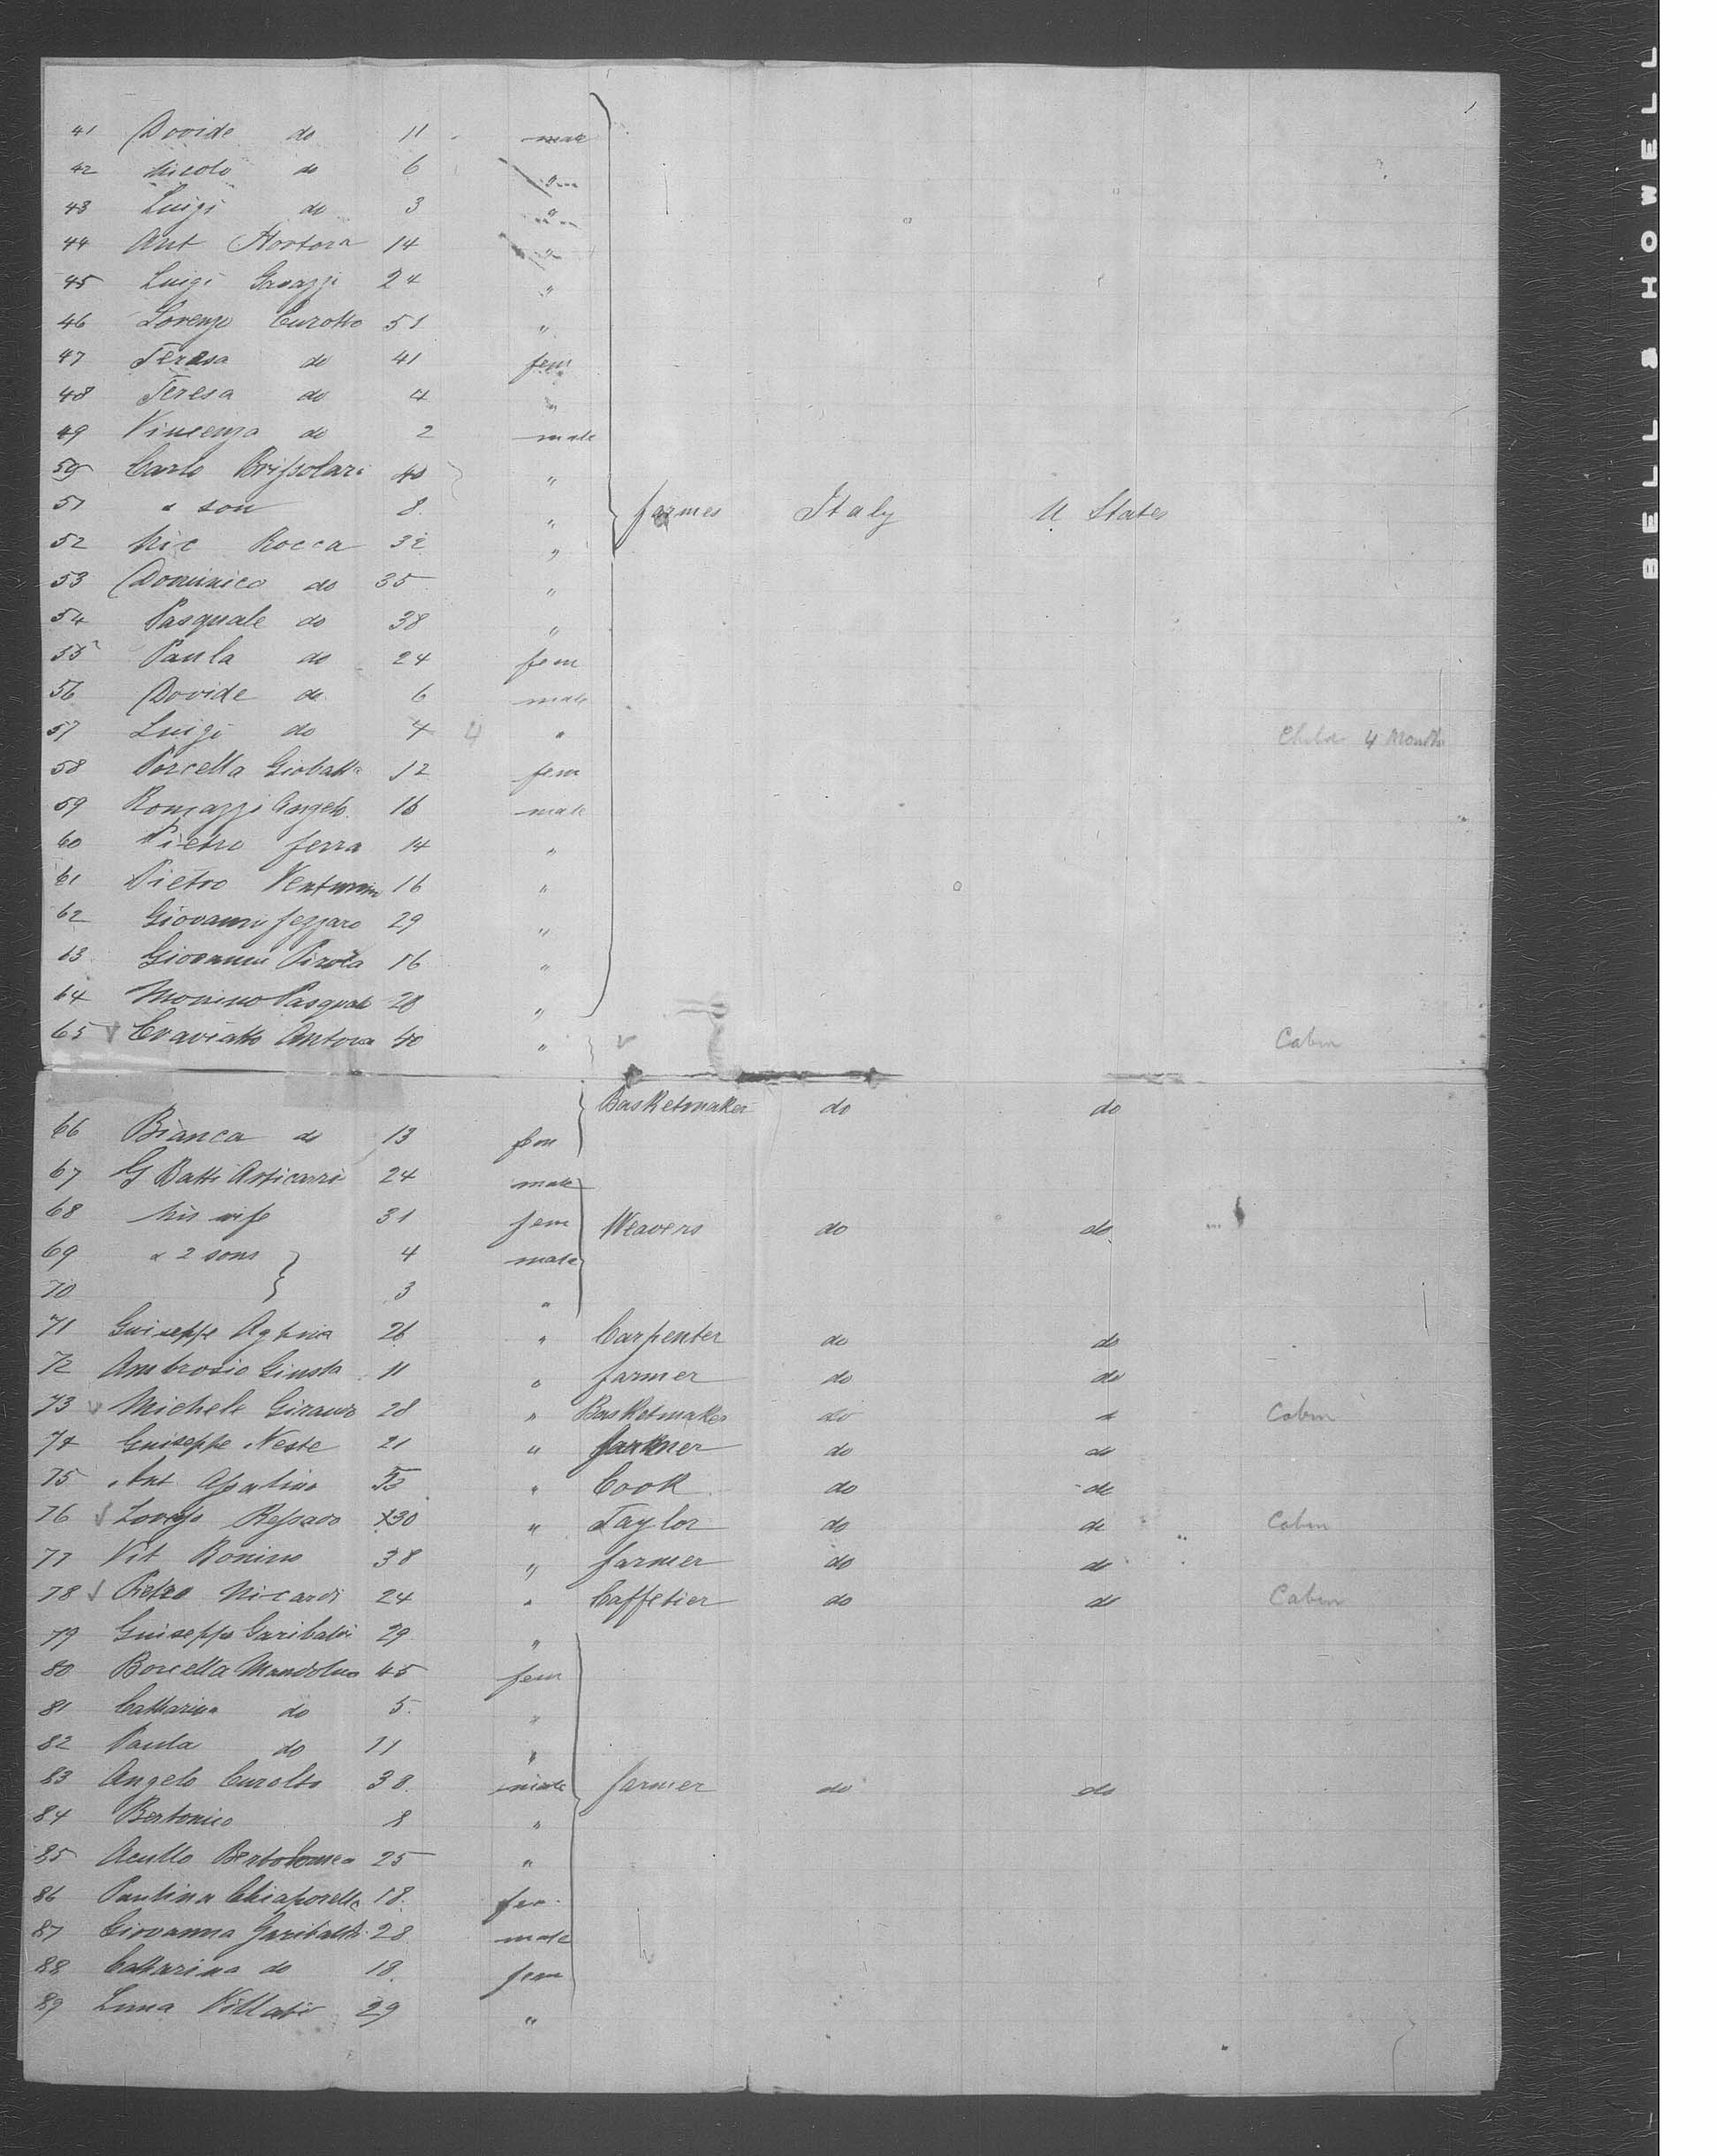 41 Dovide do 11 male
42 Nicolo do 6 "
43 Luigi do 3 "
44 Ant 14 "
45 Luigi Garazzi 24 "
46 Lorenzo Curotto 51 "
47 Teresa do 41 fem
48 Teresa do 4 "
49 Vincenza do 2 male
50 Carlo Brissolari 40 "
51 & son 8 " farmer Italy U States
52 Nic Rocca 32 "
53 Dominico do 35 "
54 Pasquale do 38 "
55 Paula do 24 fem
56 Dovide do 6 male
57 Luigi do 4 4 " Child 4 Months
58 Porcella Giobatta 12 fem
59 Romazzi Angelo 16 male
60 Pietro ferra 14 "
61 Pietro 16 "
62 Giovanni 29 "
63 Giovanni Pirola 16 "
64 Monino Pasquale 28 "
65 Craviatto 40 " Cabin
Basketmaker do do
66 Bianca do 13 fem
67 G Batti 24 male
68 his wife 31 fem Weavers do do
69 & 2 sons 4 male
70 3 "
71 Guiseppe 26 " Carpenter do do
72 Ambrosio Giusta 11 " farmer do do
73 Michele Giraud 28 " Basketmaker do do Cabin
74 Guiseppe Neste 21 " farmer do do
75 Ant " Cook do do
76 30 " Taylor do do Cabin
77 Vit Bonino 38 " farmer do do
78 Pietro Nicardi 24 " Caffetier do do Cabin
79 Guiseppe Garibaldi 29 "
80 Borcella 45 fem
81 Catharina do 5 "
82 Paula do 11 "
83 Angelo Curolto 38 male farmer do do
84 Bertonico 8 "
85 Bertolomeo 25 "
86 Paulina Chiaporella 18 fem
87 Giovanna Garibaldi 28 male
88 Catharina do 18 fem
89 29 "
BELL & HOWELL